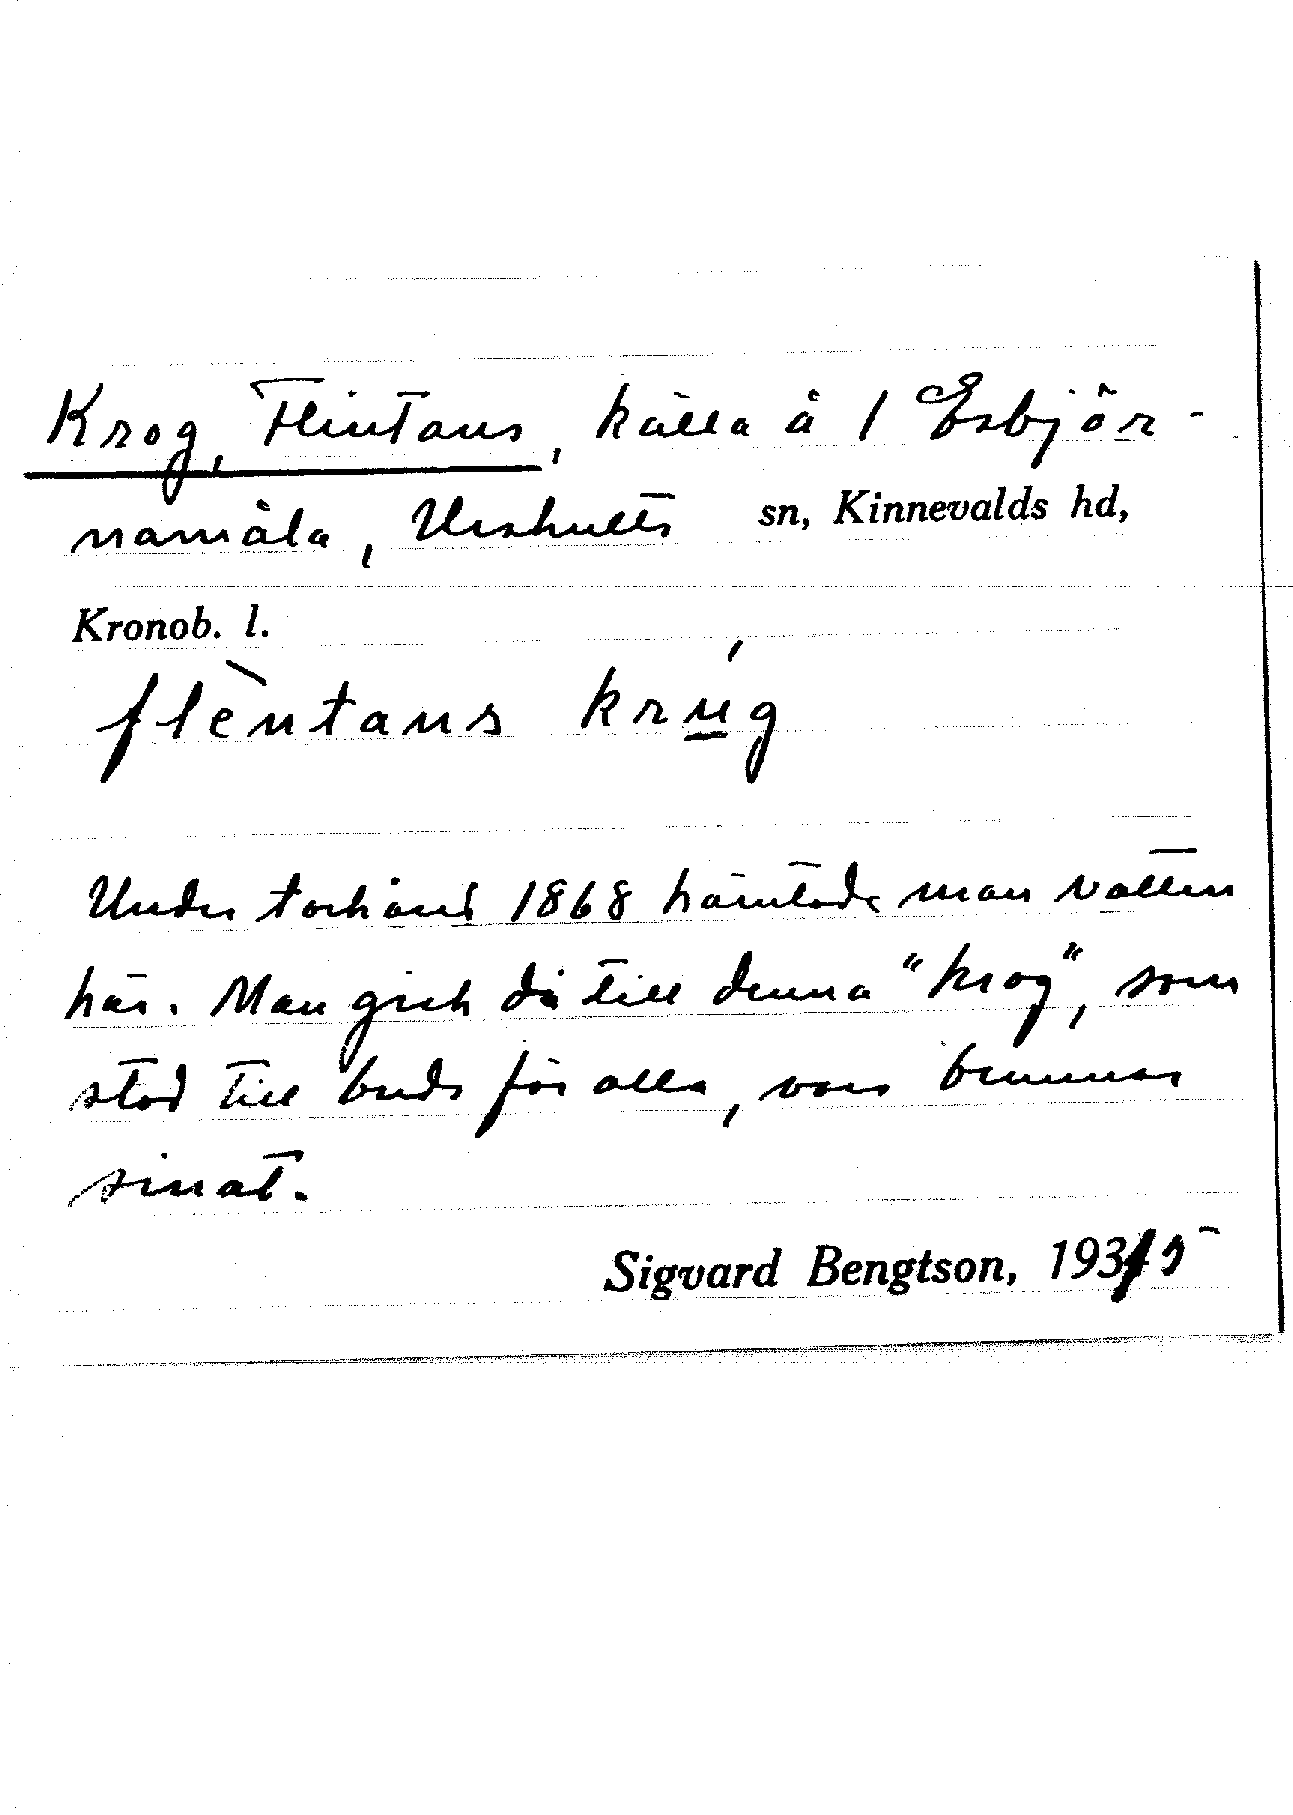 Krog, Flintans, källa å 1 Esbjör-
namåla, Urshults sn, Kinnevalds hd,
Kronob. l.
flèntans krúg
Under torkåret 1868 hämtade man vatten
här. Man gick då till denna "krog", som
stod till buds för alla, vars brunnar
sinat.
Sigvard Bengtson, 193